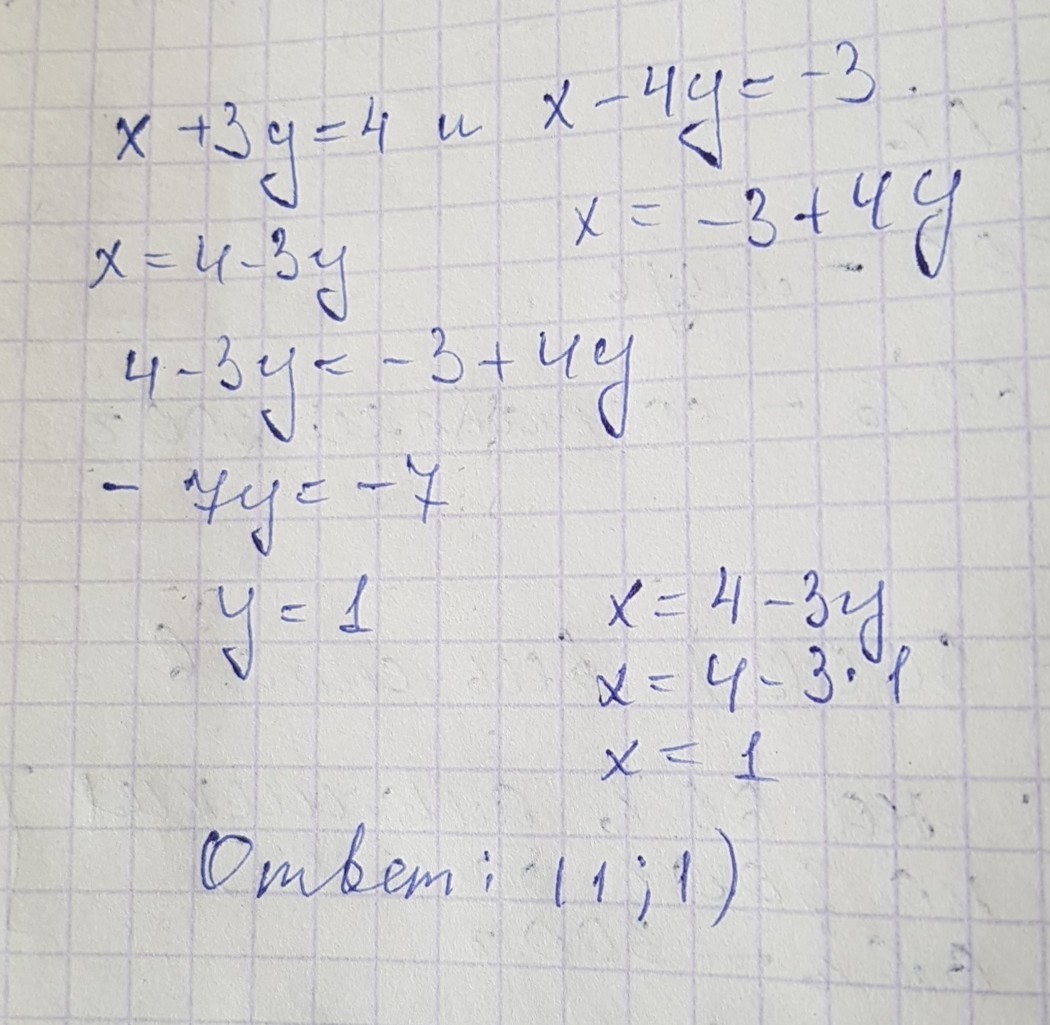 x + 3y = 4 и x - 4y = -3.
x = 4 - 3y x = -3 + 4y
4 - 3y = -3 + 4y
- 7y = -7
y = 1 x = 4 - 3y
x = 4 - 3 · 1
x = 1
Ответ: (1; 1)